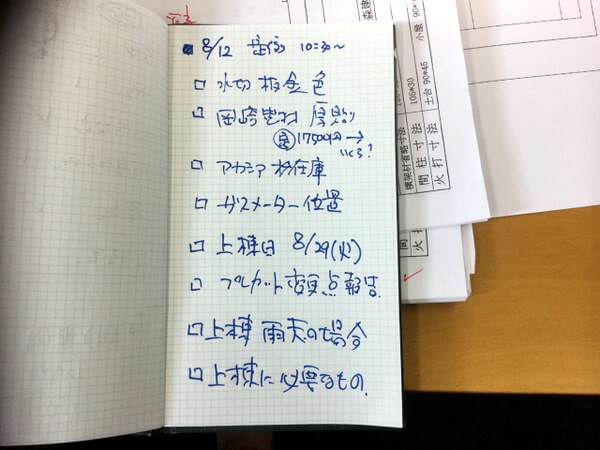 8/12 10:30～
□ 水切 板金色
□ 岡崎 厚貼り
定 17500円 → いくら?
□ アカシア 材在庫
□ ガスメーター位置
□ 上棟日 8/29(火)
□ プレカット変更点報告.
□ 上棟 雨天の場合
□ 上棟に必要なもの.
横架材省略寸法 105*30
間柱寸法 土台 90*45
火打寸法 小屋 90*
間
火打